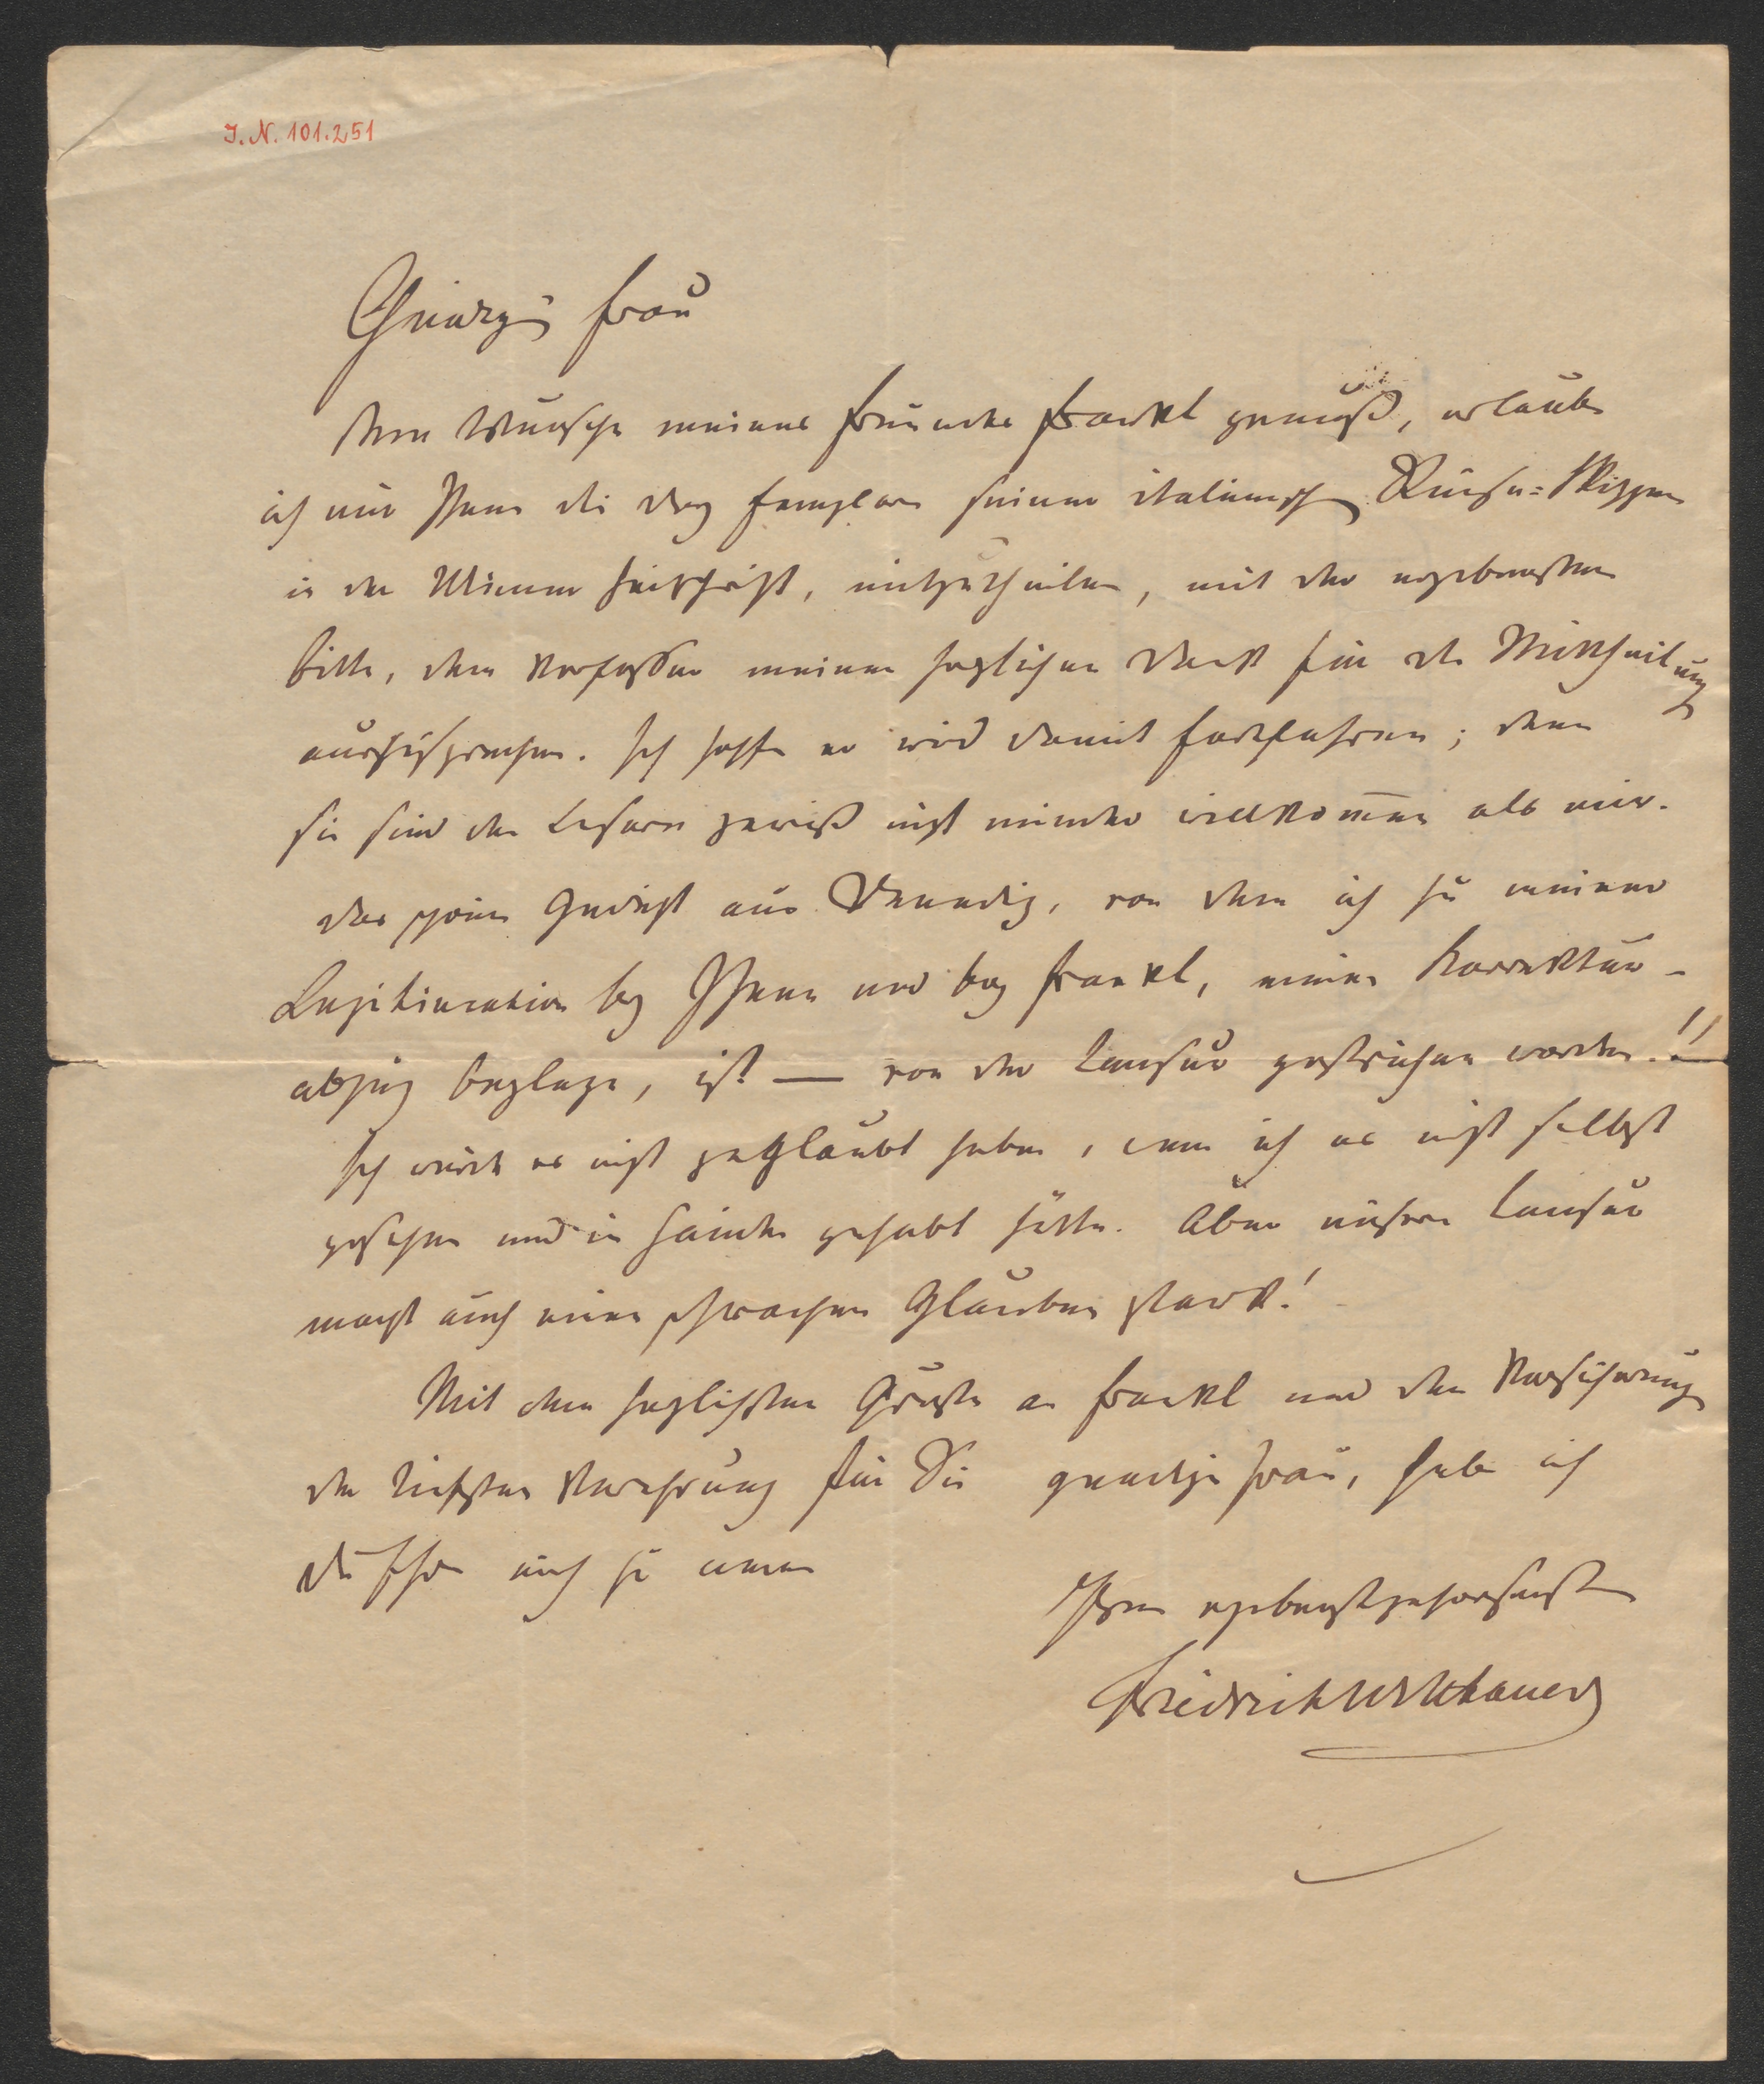 I. N. 101.251
Gnädige Frau
Dem Wunsche meines Freundes Frankl gemäß, erlaube
ich mir Ihnen die drey Exemplare seiner italienischen Reise=Skizzen
in der Wiener Zeitschrift, mitzutheilen, mit der ergebensten
Bitte, dem Verfasser meinen herzlichen Dank für die Mittheilung
auszusprechen. Ich hoffe er wird damit fortfahren; denn
sie sind den Lesern gewiß nicht minder willkom̅en als mir.
Das schöne Gedicht aus Venedig, von dem ich zu meiner
Legitimation bey Ihnen und bey Frankl, einen Korrektur-
abzug beylege, ist — von der Censur gestrichen worden!!—
Ich würde es nicht geglaubt haben, wenn ich es nicht selbst
gesehen und in Händen gehabt hätte. Aber unsere Censur
macht auch einen schwachen Glauben stark!
Mit den herzlichsten Grüßen an Frankl und der Versicherung
der tiefsten Verehrung für Sie gnädige Frau, habe ich
die Ehre mich zu nennen
Ihren ergebenstgehorsamsten
Friedrich Witthauer